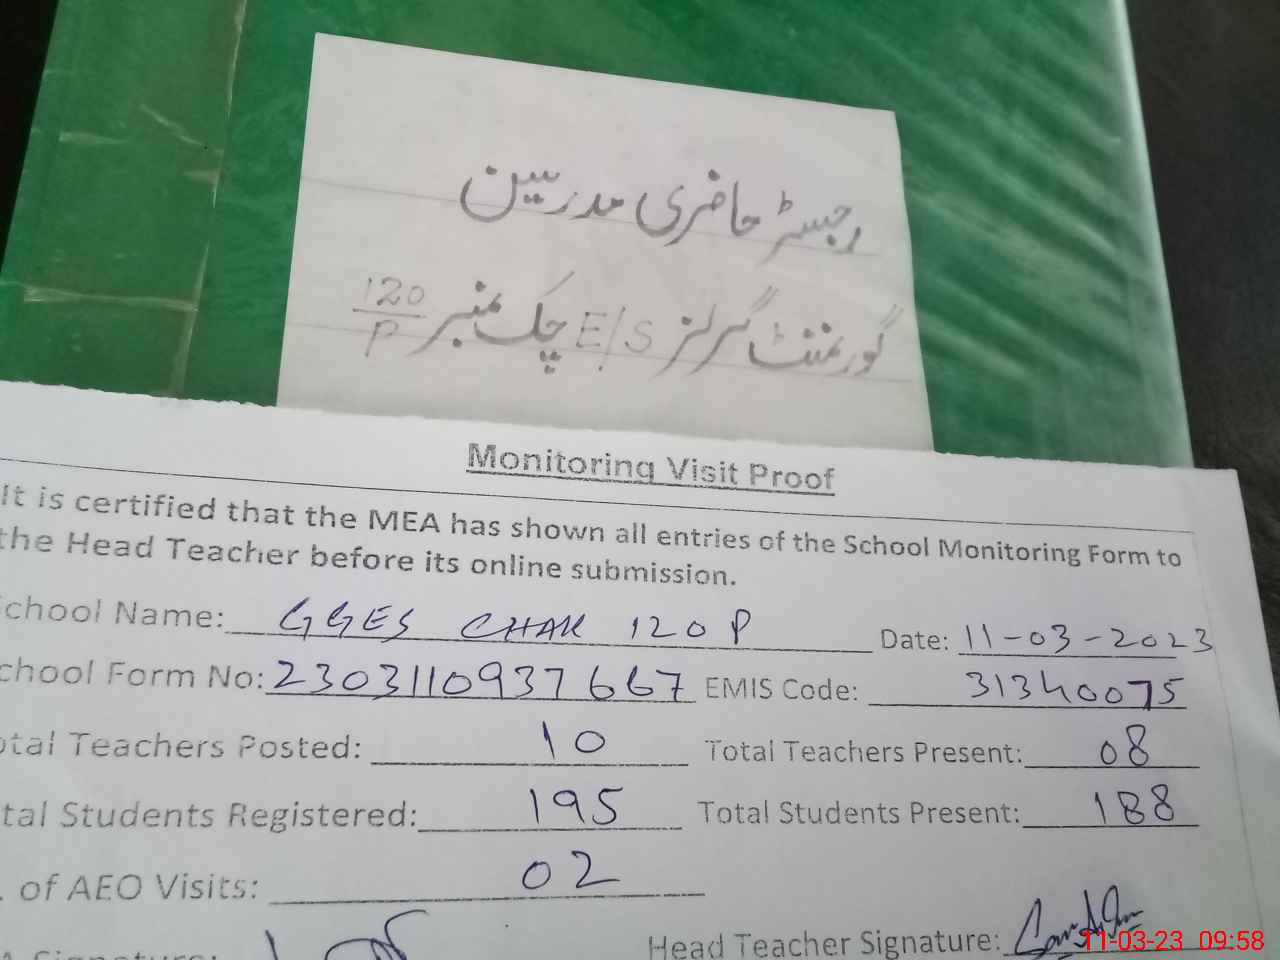 رجسٹر حاضری مدرسین
گورنمنٹ گرلز E/S چک نمبر 120/P
Monitoring Visit Proof
It is certified that the MEA has shown all entries of the School Monitoring Form to
the Head Teacher before its online submission.
chool Name: GGES CHAK 120 P Date: 11-03-2023
chool Form No: 2303110937667 EMIS Code: 31340075
otal Teachers Posted: 10 Total Teachers Present: 08
tal Students Registered: 195 Total Students Present: 188
. of AEO Visits: 02
A Signature: Head Teacher Signature:
11-03-23 09:58